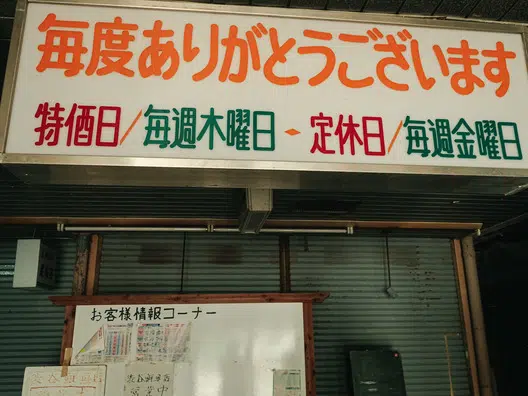 毎度ありがとうございます
特価日/毎週木曜日・定休日/毎週金曜日
お客様情報コーナー
営業中